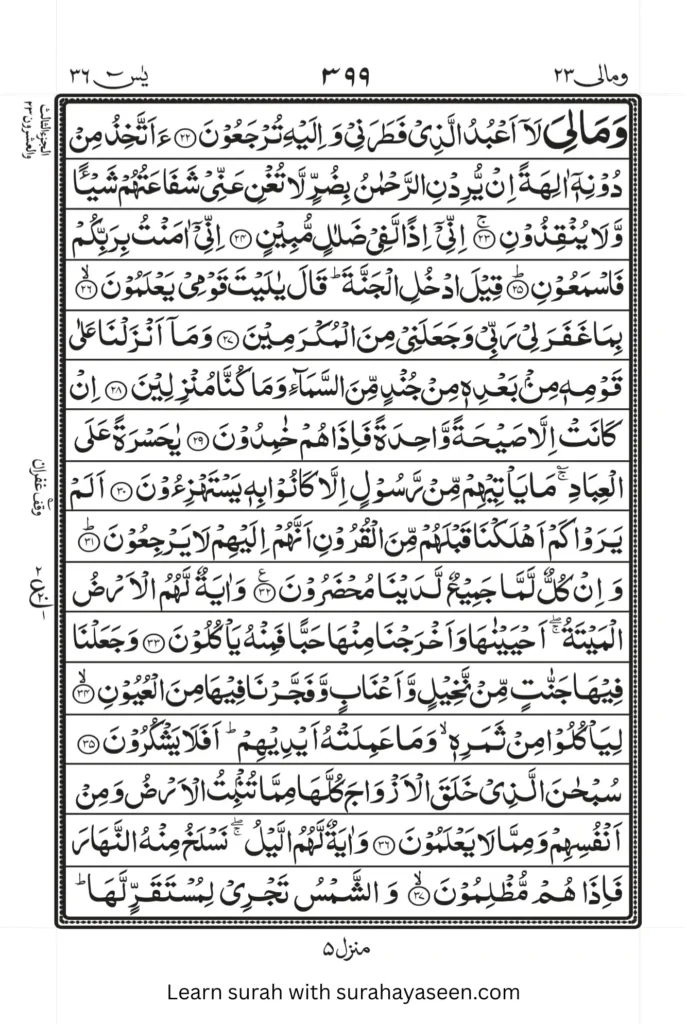 ومالی ۲۳
۳۹۹
یٰسٓ ۳۶
الجزء الثالث
والعشرون ۲۳
وَمَالِیَ لَاۤ اَعْبُدُ الَّذِیْ فَطَرَنِیْ وَ اِلَیْهِ تُرْجَعُوْنَ ﴿۲۲﴾ ءَاَتَّخِذُ مِنْ
دُوْنِهٖۤ اٰلِهَةً اِنْ یُّرِدْنِ الرَّحْمٰنُ بِضُرٍّ لَّا تُغْنِ عَنِّیْ شَفَاعَتُهُمْ شَیْـًٔا
وَّلَا یُنْقِذُوْنِ ﴿۲۳﴾ۚ اِنِّیْۤ اِذًا لَّفِیْ ضَلٰلٍ مُّبِیْنٍ ﴿۲۴﴾ اِنِّیْۤ اٰمَنْتُ بِرَبِّكُمْ
فَاسْمَعُوْنِ ﴿۲۵﴾ؕ قِیْلَ ادْخُلِ الْجَنَّةَ ؕ قَالَ یٰلَیْتَ قَوْمِیْ یَعْلَمُوْنَ ﴿۲۶﴾ۙ
بِمَا غَفَرَ لِیْ رَبِّیْ وَجَعَلَنِیْ مِنَ الْمُكْرَمِیْنَ ﴿۲۷﴾ وَمَاۤ اَنْزَلْنَا عَلٰی
قَوْمِهٖ مِنْۢ بَعْدِهٖ مِنْ جُنْدٍ مِّنَ السَّمَآءِ وَمَا كُنَّا مُنْزِلِیْنَ ﴿۲۸﴾ اِنْ
كَانَتْ اِلَّا صَیْحَةً وَّاحِدَةً فَاِذَا هُمْ خٰمِدُوْنَ ﴿۲۹﴾ یٰحَسْرَةً عَلَی
الْعِبَادِ ۚؗ مَا یَاْتِیْهِمْ مِّنْ رَّسُوْلٍ اِلَّا كَانُوْا بِهٖ یَسْتَهْزِءُوْنَ ﴿۳۰﴾ اَلَمْ
وقف غفران
یَرَوْا كَمْ اَهْلَكْنَا قَبْلَهُمْ مِّنَ الْقُرُوْنِ اَنَّهُمْ اِلَیْهِمْ لَا یَرْجِعُوْنَ ﴿۳۱﴾ؕ
وَ اِنْ كُلٌّ لَّمَّا جَمِیْعٌ لَّدَیْنَا مُحْضَرُوْنَ ﴿۳۲﴾۠ وَاٰیَةٌ لَّهُمُ الْاَرْضُ
الْمَیْتَةُ ۖۚ اَحْیَیْنٰهَا وَاَخْرَجْنَا مِنْهَا حَبًّا فَمِنْهُ یَاْكُلُوْنَ ﴿۳۳﴾ وَجَعَلْنَا
فِیْهَا جَنّٰتٍ مِّنْ نَّخِیْلٍ وَّاَعْنَابٍ وَّفَجَّرْنَا فِیْهَا مِنَ الْعُیُوْنِ ﴿۳۴﴾ۙ
لِیَاْكُلُوْا مِنْ ثَمَرِهٖ ۙ وَمَا عَمِلَتْهُ اَیْدِیْهِمْ ؕ اَفَلَا یَشْكُرُوْنَ ﴿۳۵﴾
سُبْحٰنَ الَّذِیْ خَلَقَ الْاَزْوَاجَ كُلَّهَا مِمَّا تُنْۢبِتُ الْاَرْضُ وَمِنْ
اَنْفُسِهِمْ وَمِمَّا لَا یَعْلَمُوْنَ ﴿۳۶﴾ وَاٰیَةٌ لَّهُمُ الَّیْلُ ۖۚ نَسْلَخُ مِنْهُ النَّهَارَ
فَاِذَا هُمْ مُّظْلِمُوْنَ ﴿۳۷﴾ۙ وَ الشَّمْسُ تَجْرِیْ لِمُسْتَقَرٍّ لَّهَا ؕ
منزل ۵
Learn surah with surahayaseen.com